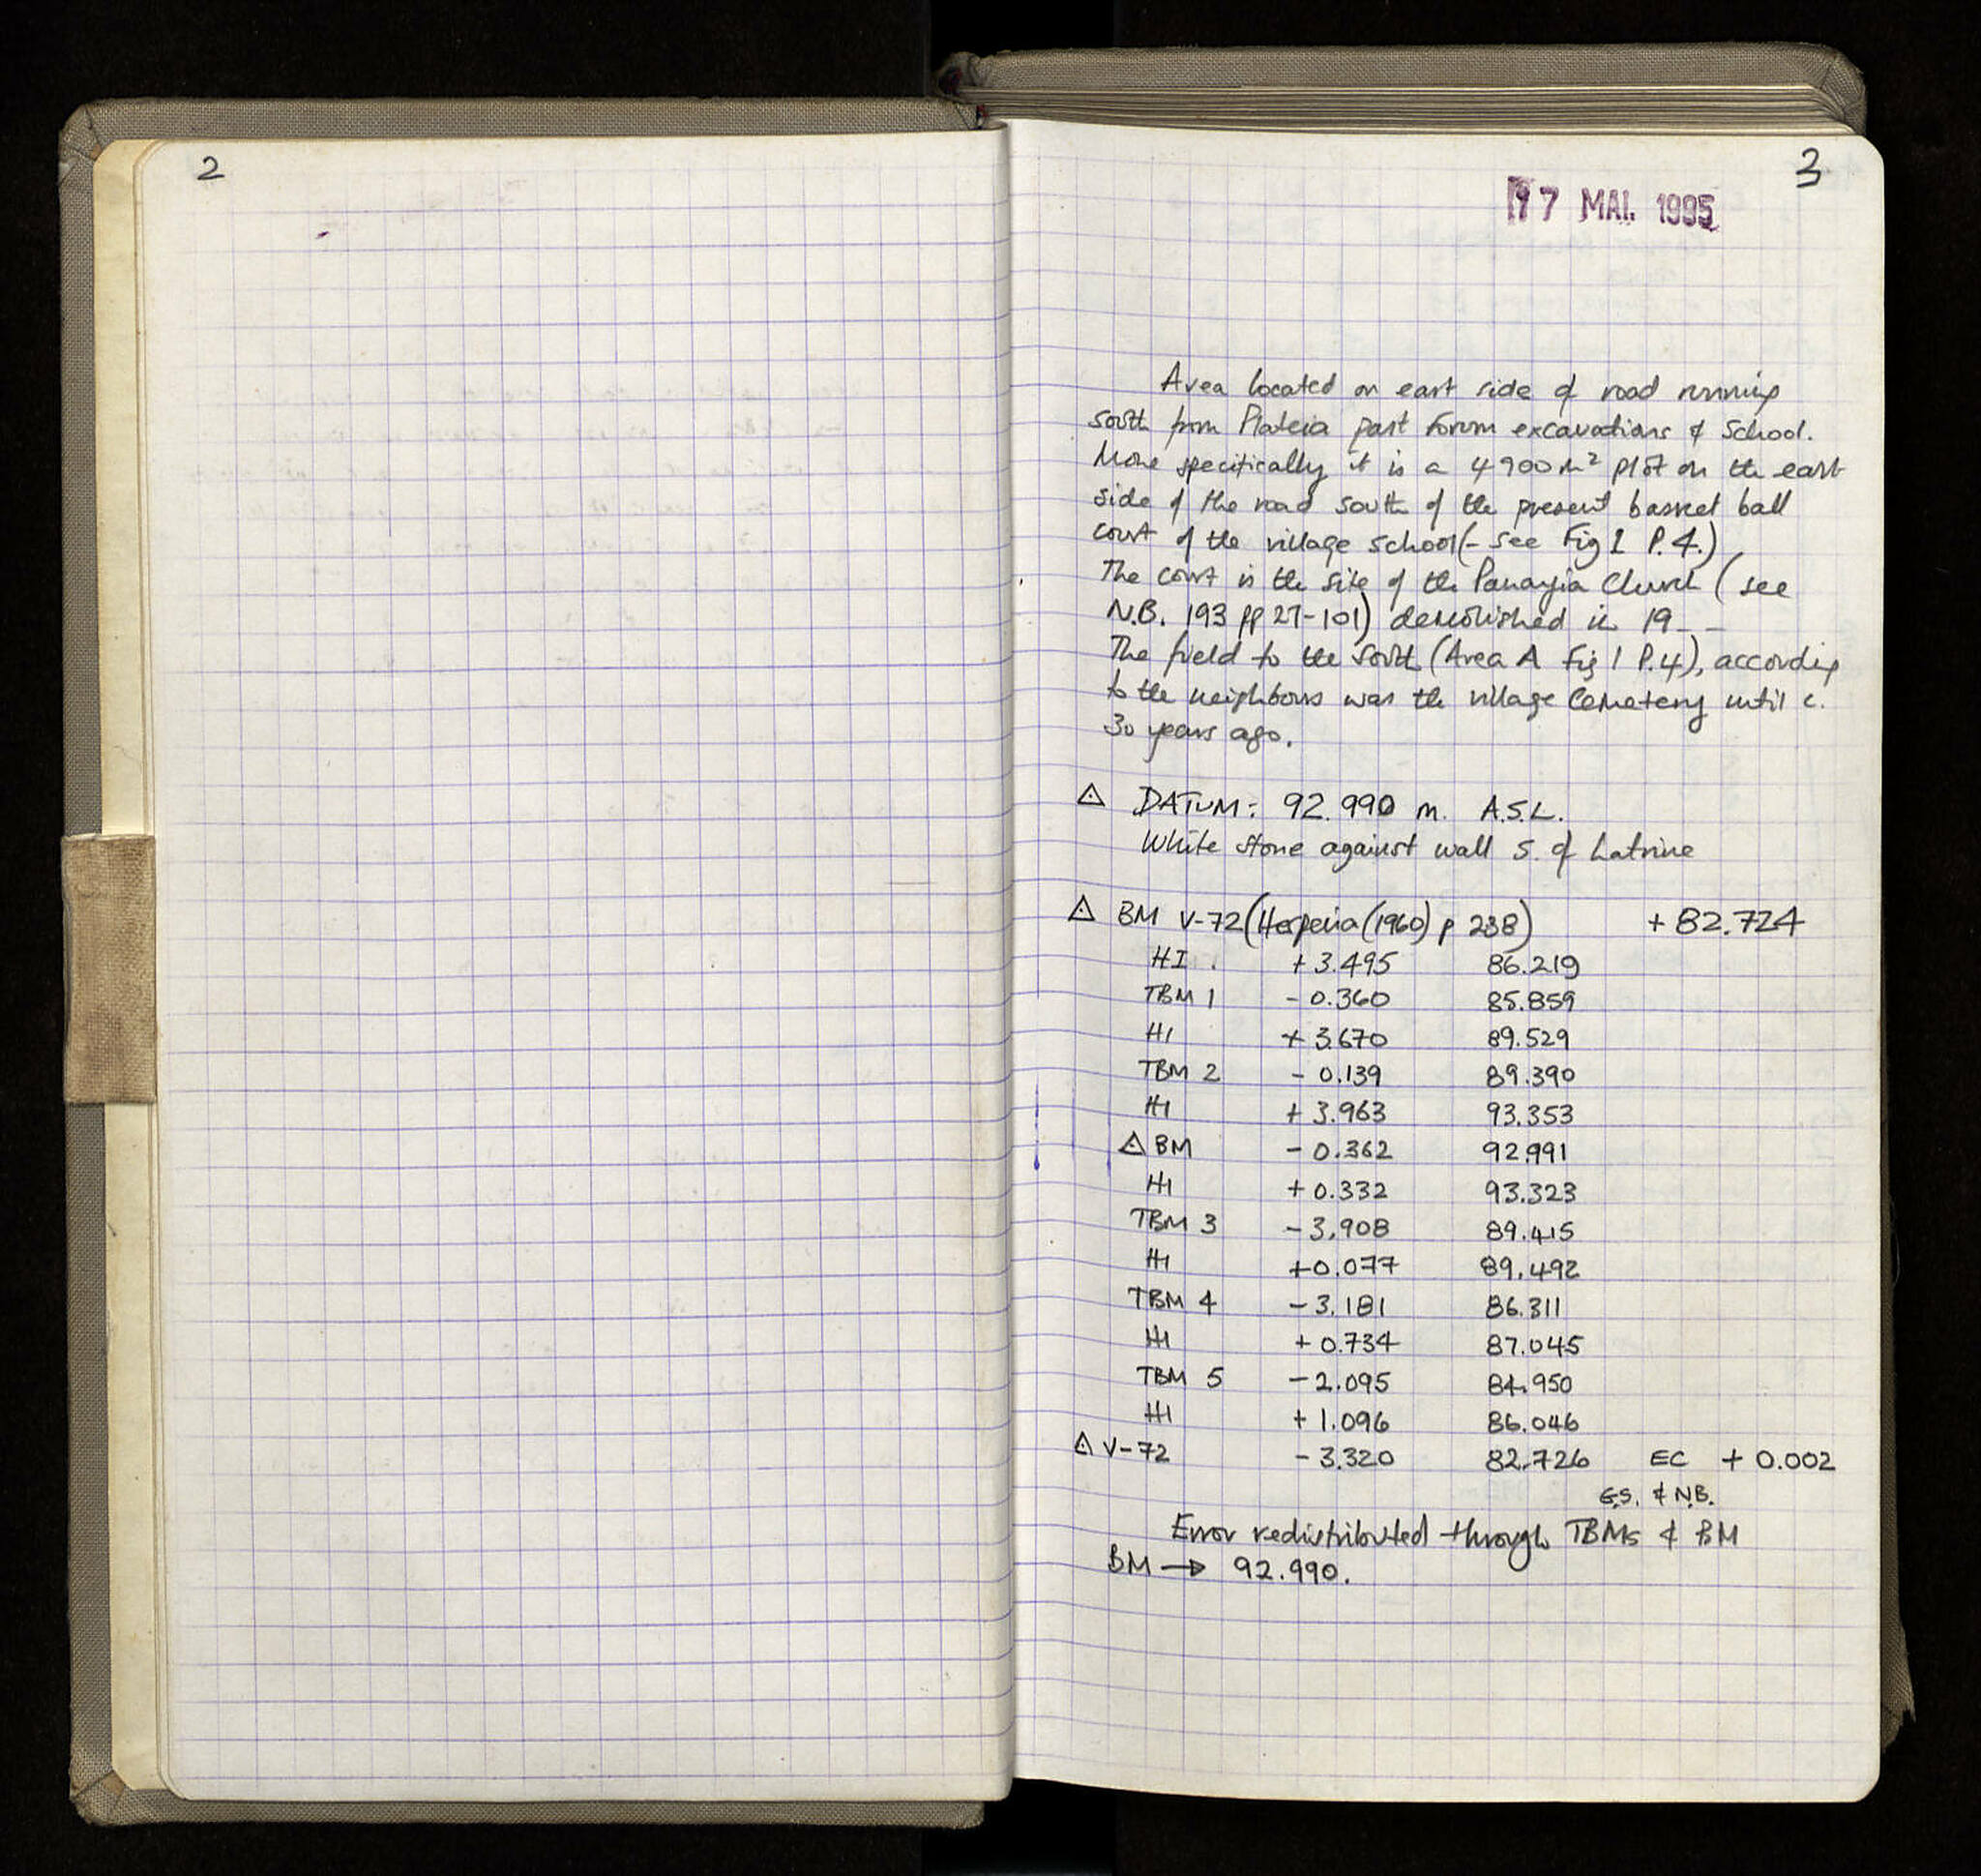 2
3
17 MAI. 1995
Area located on east side of road running
south from Plateia past Forum excavations & School.
More specifically it is a 4900 m² plot on the east
side of the road south of the present basket ball
court of the village school (- see Fig 1 P.4.)
The court is the site of the Panayia Church (see
N.B. 193 pp 27-101) demolished in 19_ _
The field to the south (Area A Fig 1 P.4), according
to the neighbours was the village Cemetery until c.
30 years ago.
△ DATUM: 92.990 m. A.S.L.
White stone against wall S. of Latrine
△ BM V-72 (Hesperia (1960) p 238) + 82.724
HI. + 3.495 86.219
TBM 1 - 0.360 85.859
HI + 3.670 89.529
TBM 2 - 0.139 89.390
HI + 3.963 93.353
△ BM - 0.362 92.991
HI + 0.332 93.323
TBM 3 - 3.908 89.415
HI + 0.077 89.492
TBM 4 - 3.181 86.311
HI + 0.734 87.045
TBM 5 - 2.095 84.950
HI + 1.096 86.046
△ V-72 - 3.320 82.726 EC + 0.002
G.S. & N.B.
Error redistributed through TBMs & BM
BM → 92.990.